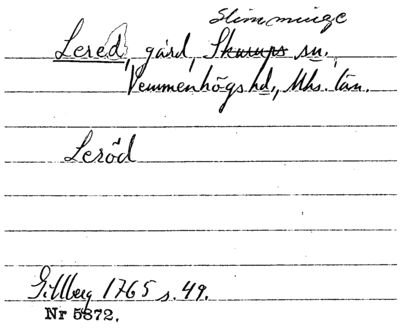 Slimminge
Lered, gård, Skurups sn.,
Vemmenhögs hd., Mhs. län.
Leröd
Gillberg 1765 s. 49.
Nr 5872.